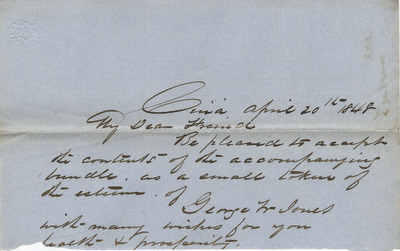 Cin'a April 20th 1848
My Dear Freind
Be pleased to accept
the contents of the accompanying
bundle, as a small token of
the esteem of
George W Jones
with many wishes for you
health & prosperity.